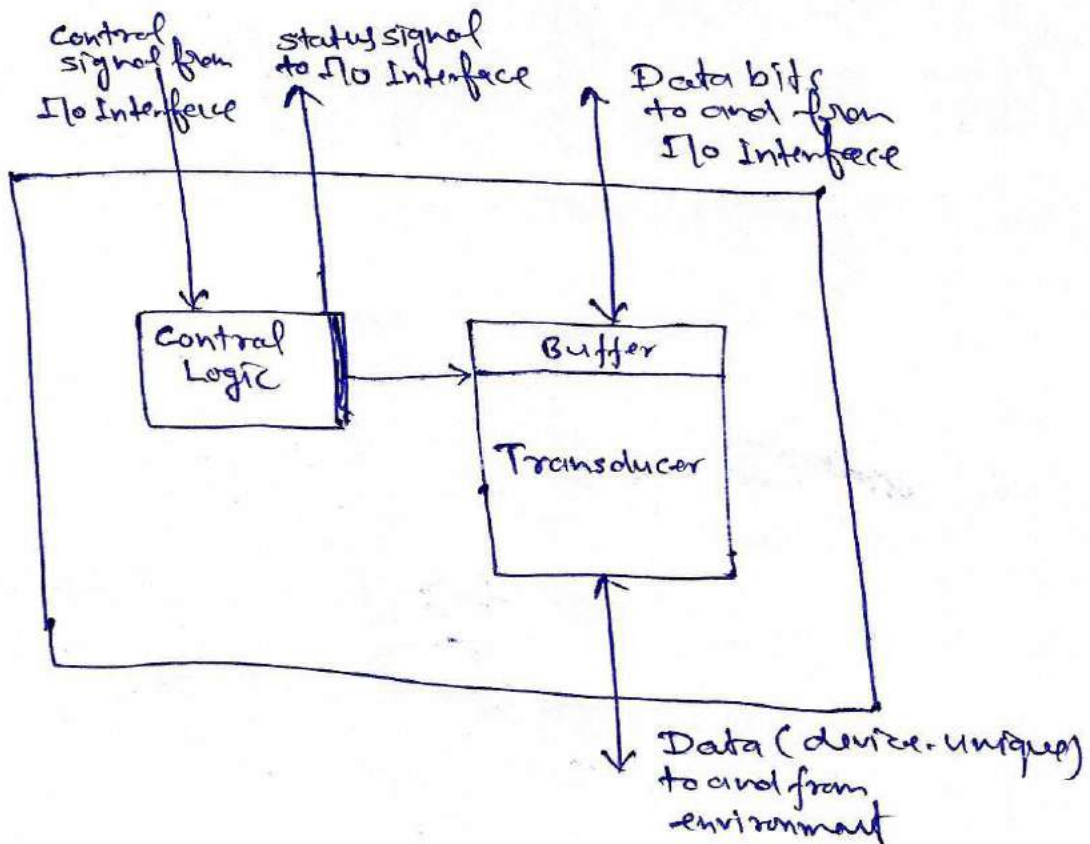 Control
signal from
I/o Interface
status signal
to I/o Interface
Data bits
to and from
I/o Interface
Control
Logic
Buffer
Transducer
Data (device-unique)
to and from
environment